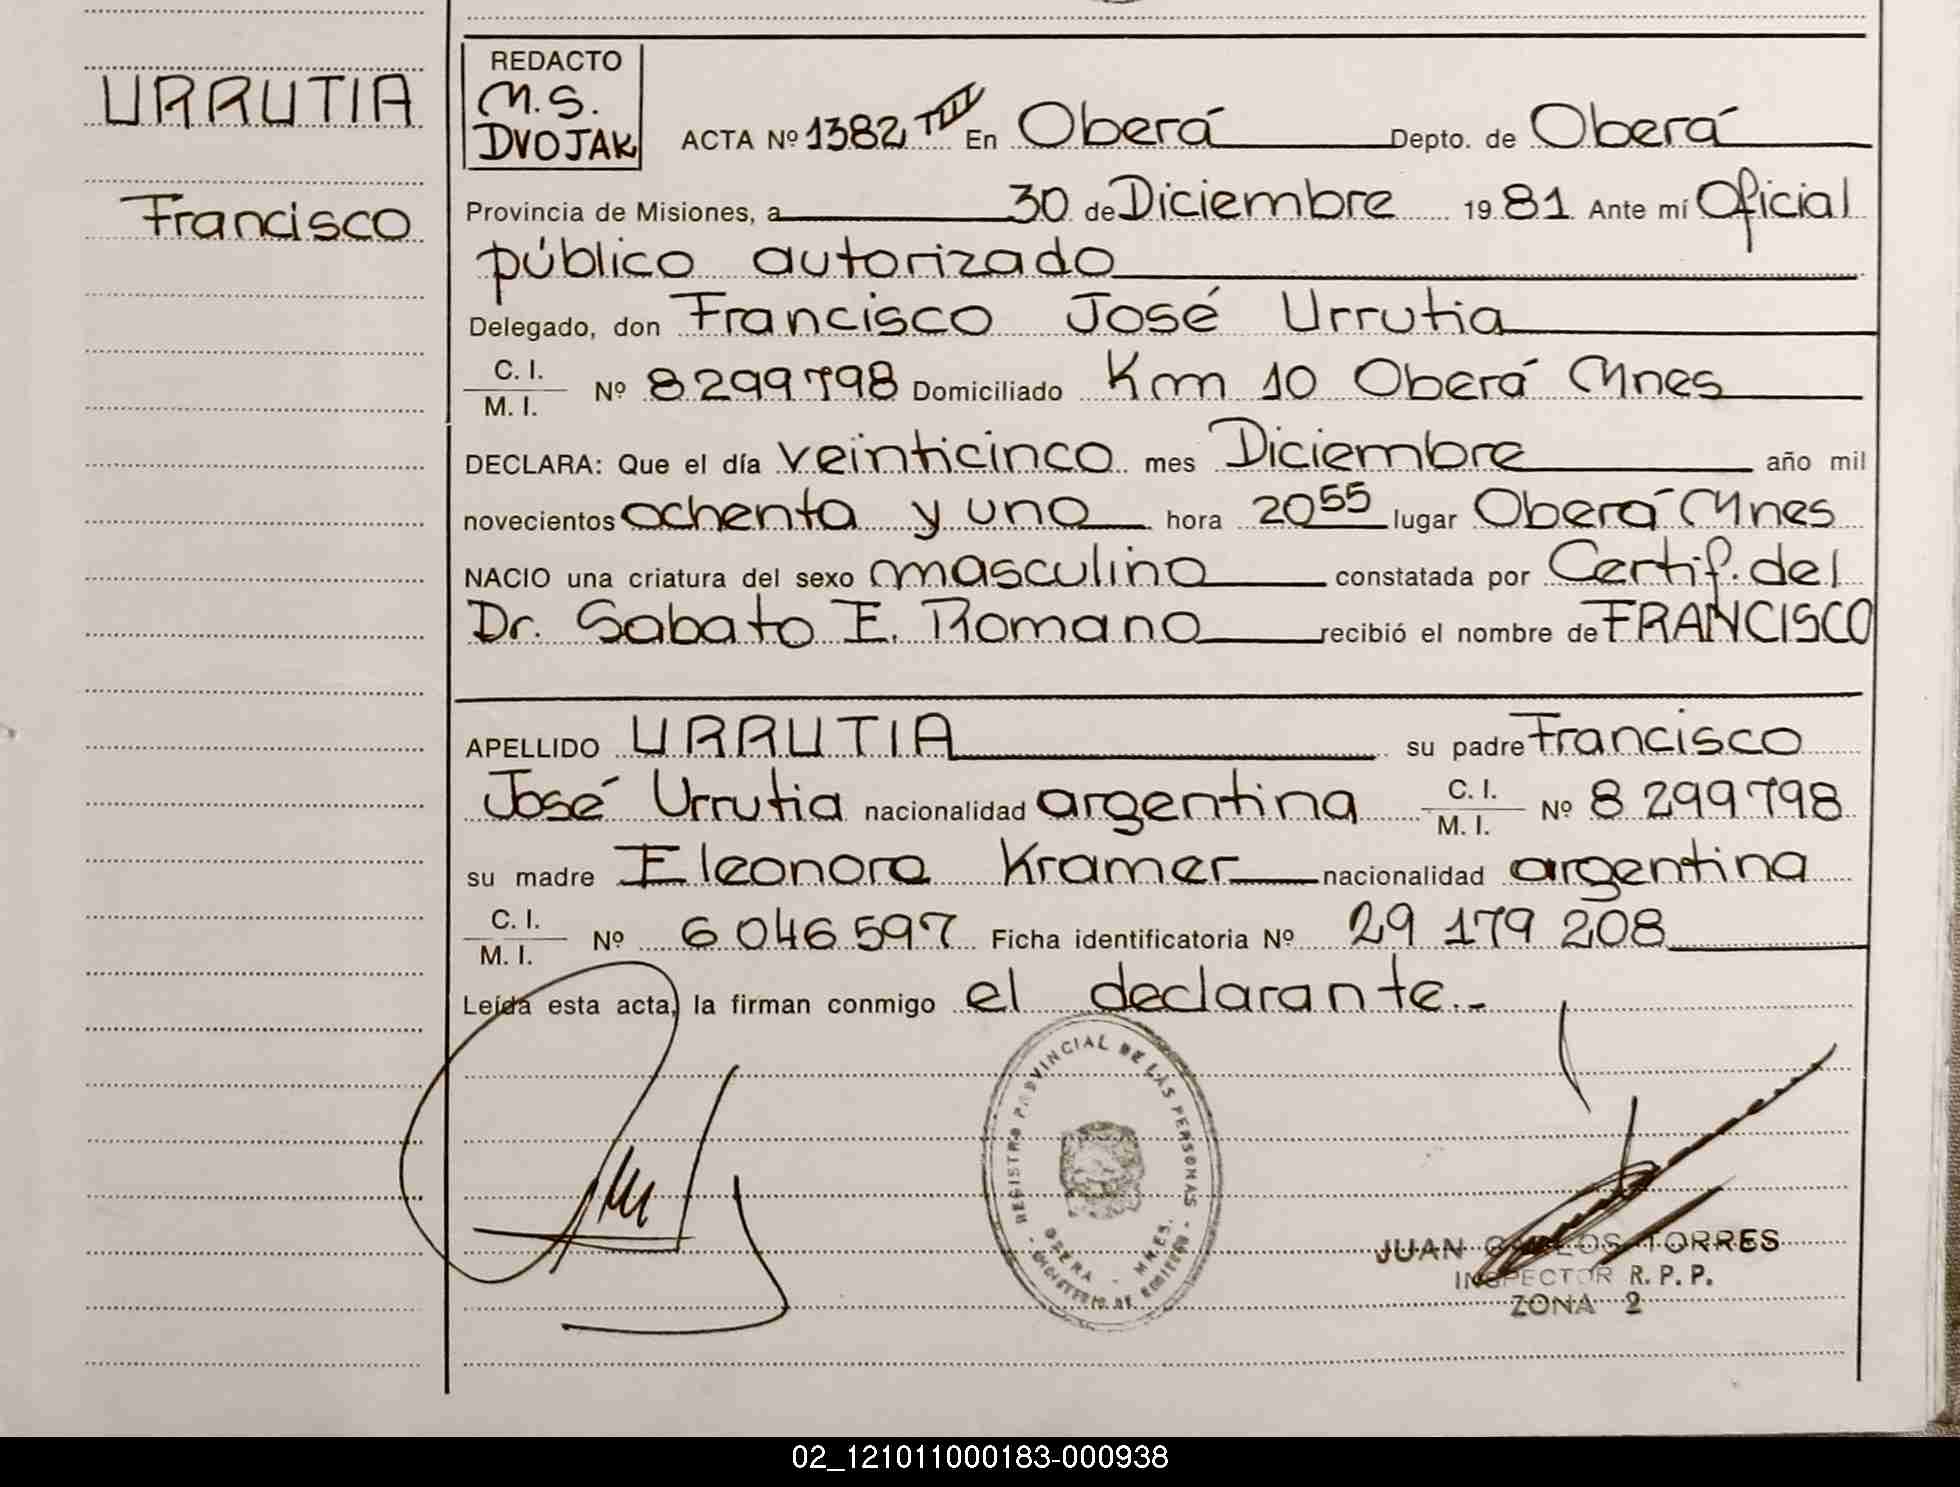 URRUTIA
Francisco
REDACTO
M.S.
DVOJAK
ACTA Nº 1382 TIII En Oberá Depto. de Oberá
Provincia de Misiones, a 30 de Diciembre 1981 Ante mí Oficial
público autorizado
Delegado, don Francisco José Urrutia
C. I.
M. I.
Nº 8299798 Domiciliado Km 10 Oberá Mnes
DECLARA: Que el día veinticinco mes Diciembre año mil
novecientos ochenta y uno hora 20 55 lugar Oberá Mnes
NACIO una criatura del sexo masculino constatada por Certif. del
Dr. Sabato E. Romano recibió el nombre de FRANCISCO
APELLIDO URRUTIA su padre Francisco
José Urrutia nacionalidad argentina C. I. M. I. Nº 8 299798
su madre Eleonora Kramer nacionalidad argentina
C. I.
M. I.
Nº 6 046 597 Ficha identificatoria Nº 29 179 208
Leída esta acta, la firman conmigo el declarante.-
REGISTRO PROVINCIAL DE LAS PERSONAS
OBERA - MNES.
MINISTERIO DE GOBIERNO
JUAN CARLOS TORRES
INSPECTOR R. P. P.
ZONA 2
02_121011000183-000938